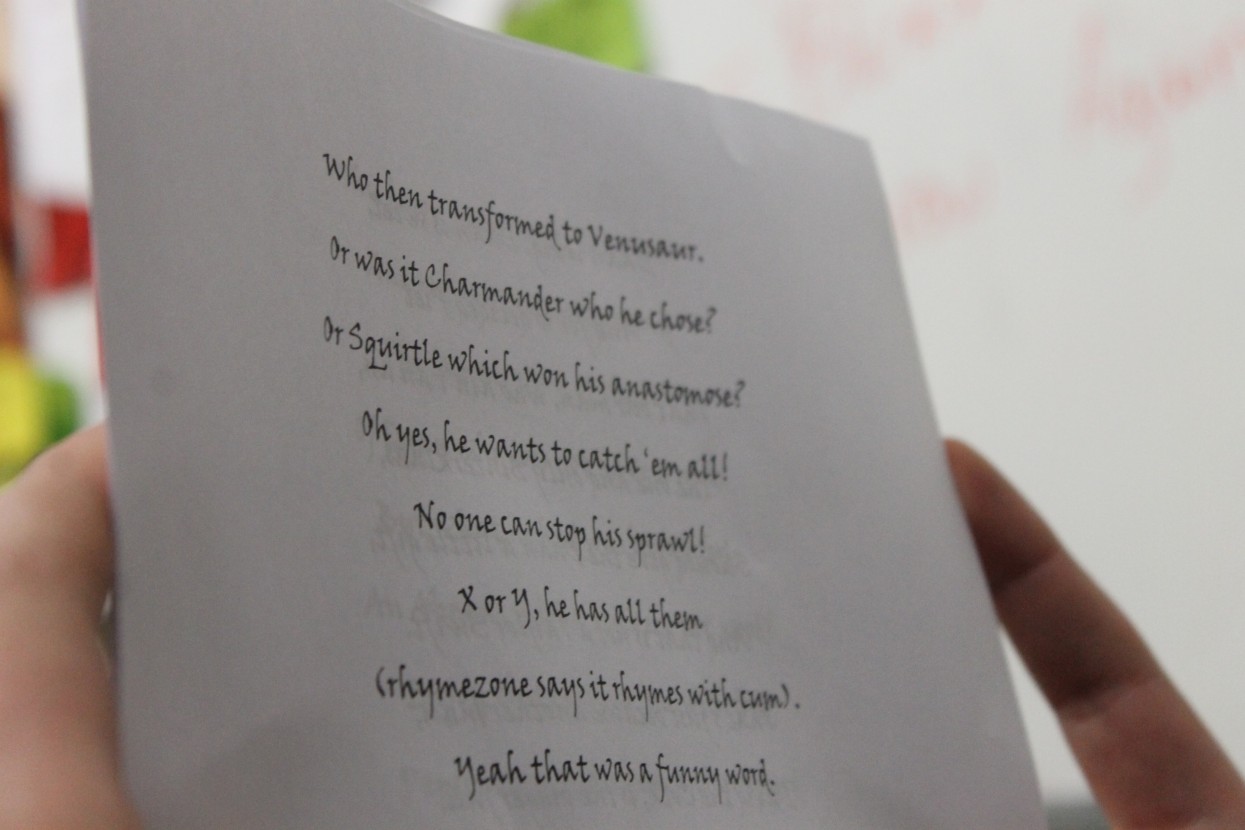 Who then transformed to Venusaur.
Or was it Charmander who he chose?
Or Squirtle which won his anastomose?
Oh yes, he wants to catch 'em all!
No one can stop his sprawl!
X or Y, he has all them
(rhymezone says it rhymes with cum).
Yeah that was a funny word.